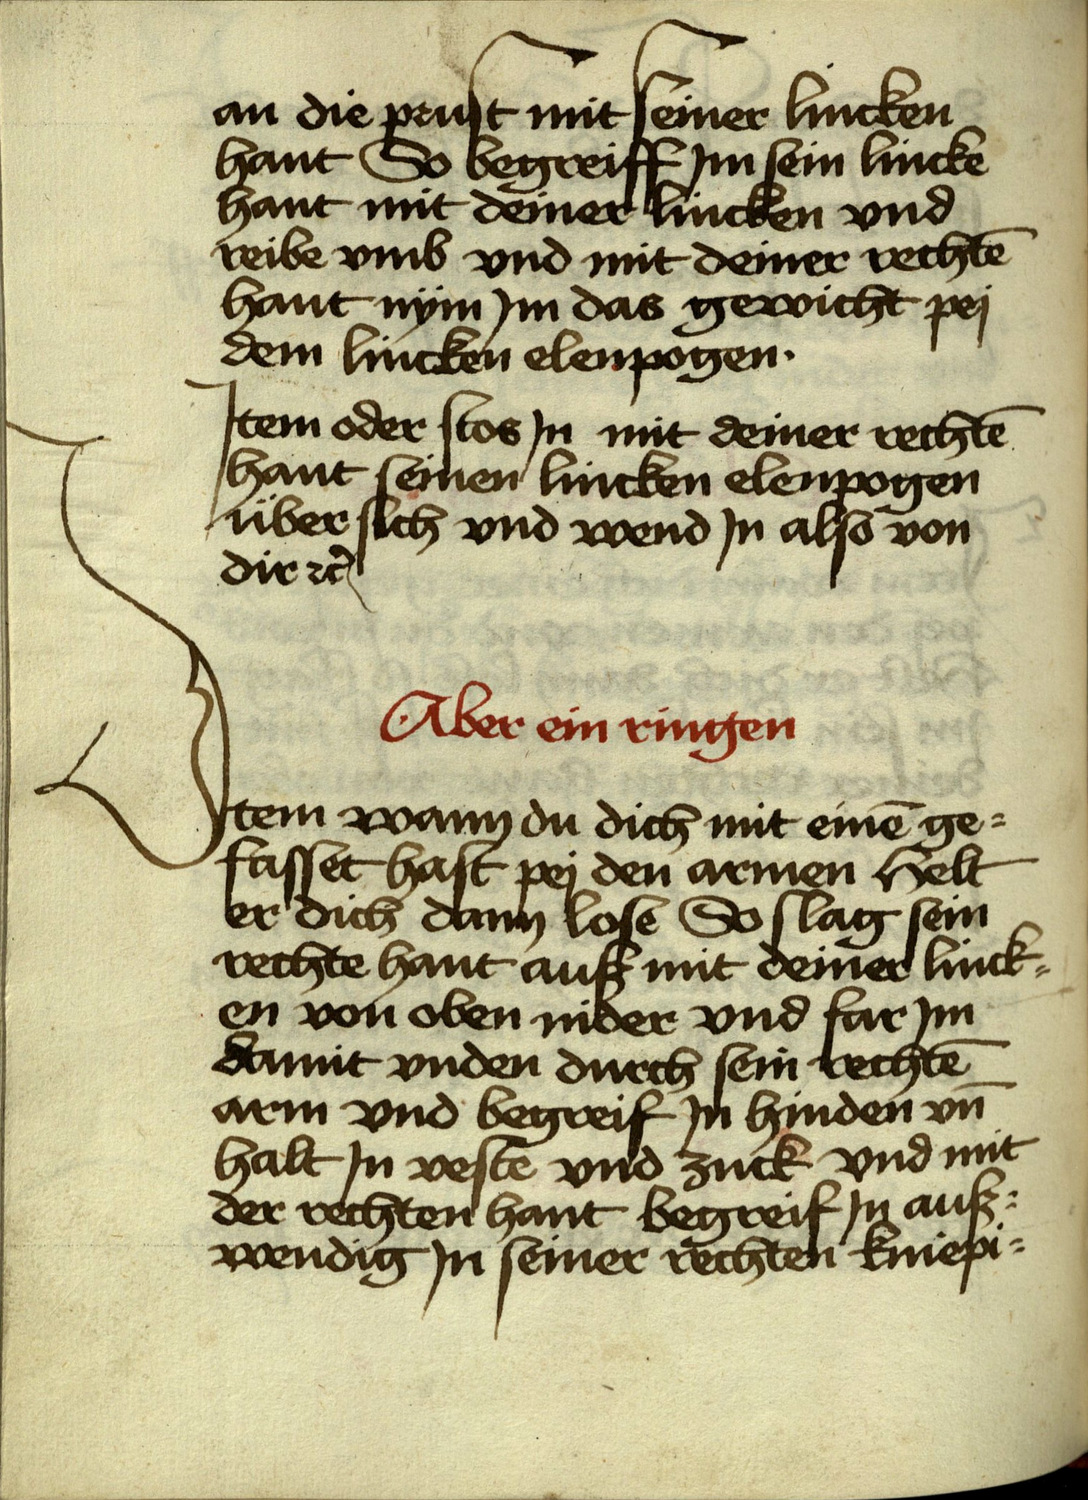 an die prust mit seiner lincken
hant So begreiff Im sein lincke
hant mit deiner lincken vnd
reibe vmb vnd mit deiner rechtē
hant nÿm Im das gewicht pej
dem lincken elenpogen·
Item oder stos In mit deiner rechtē
hant seinen lincken elenpogen
über sich vnd wend In also von
dir ⁊c̄
·Aber ein ringen
Item wann du dich mit einē ge=
fasset hast pej den armen Helt
er dich dann lose So slag sein
rechte hant auß mit deiner linck=
en von oben nider vnd far Im
damit vnden durch sein rechtē
arm vnd begreif In hinden vn̄
halt In veste vnd zuck vnd mit
der rechten hant begreif In auß=
wendig In seiner rechten kniepi=